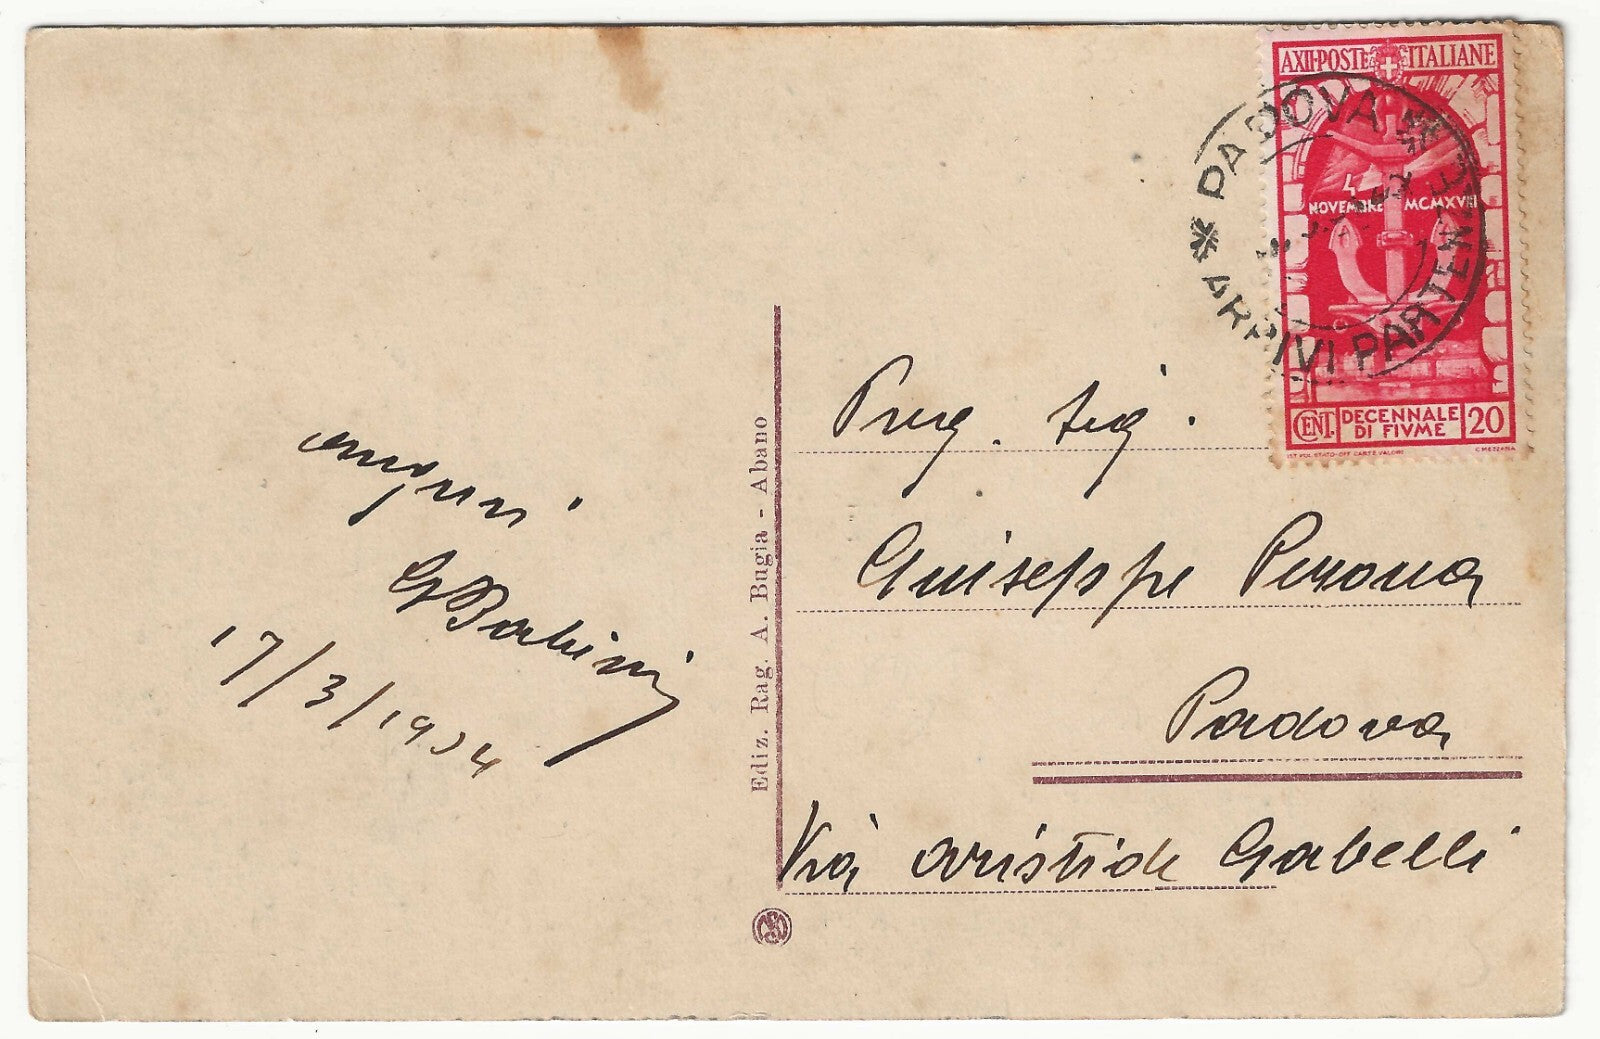 AXII·POSTE ITALIANE
4
NOVEMBRE MCMXVIII
CENT. DECENNALE DI FIVME 20
IST. POL. STATO-OFF. CARTE VALORI C. MEZZANA
* PADOVA *
ARRIVI PARTENZE
auguri
17/3/1934
Ediz. Rag. A. Bugia - Abano
Preg. sig.
Giuseppe Perona
Padova
Via Aristide Gabelli